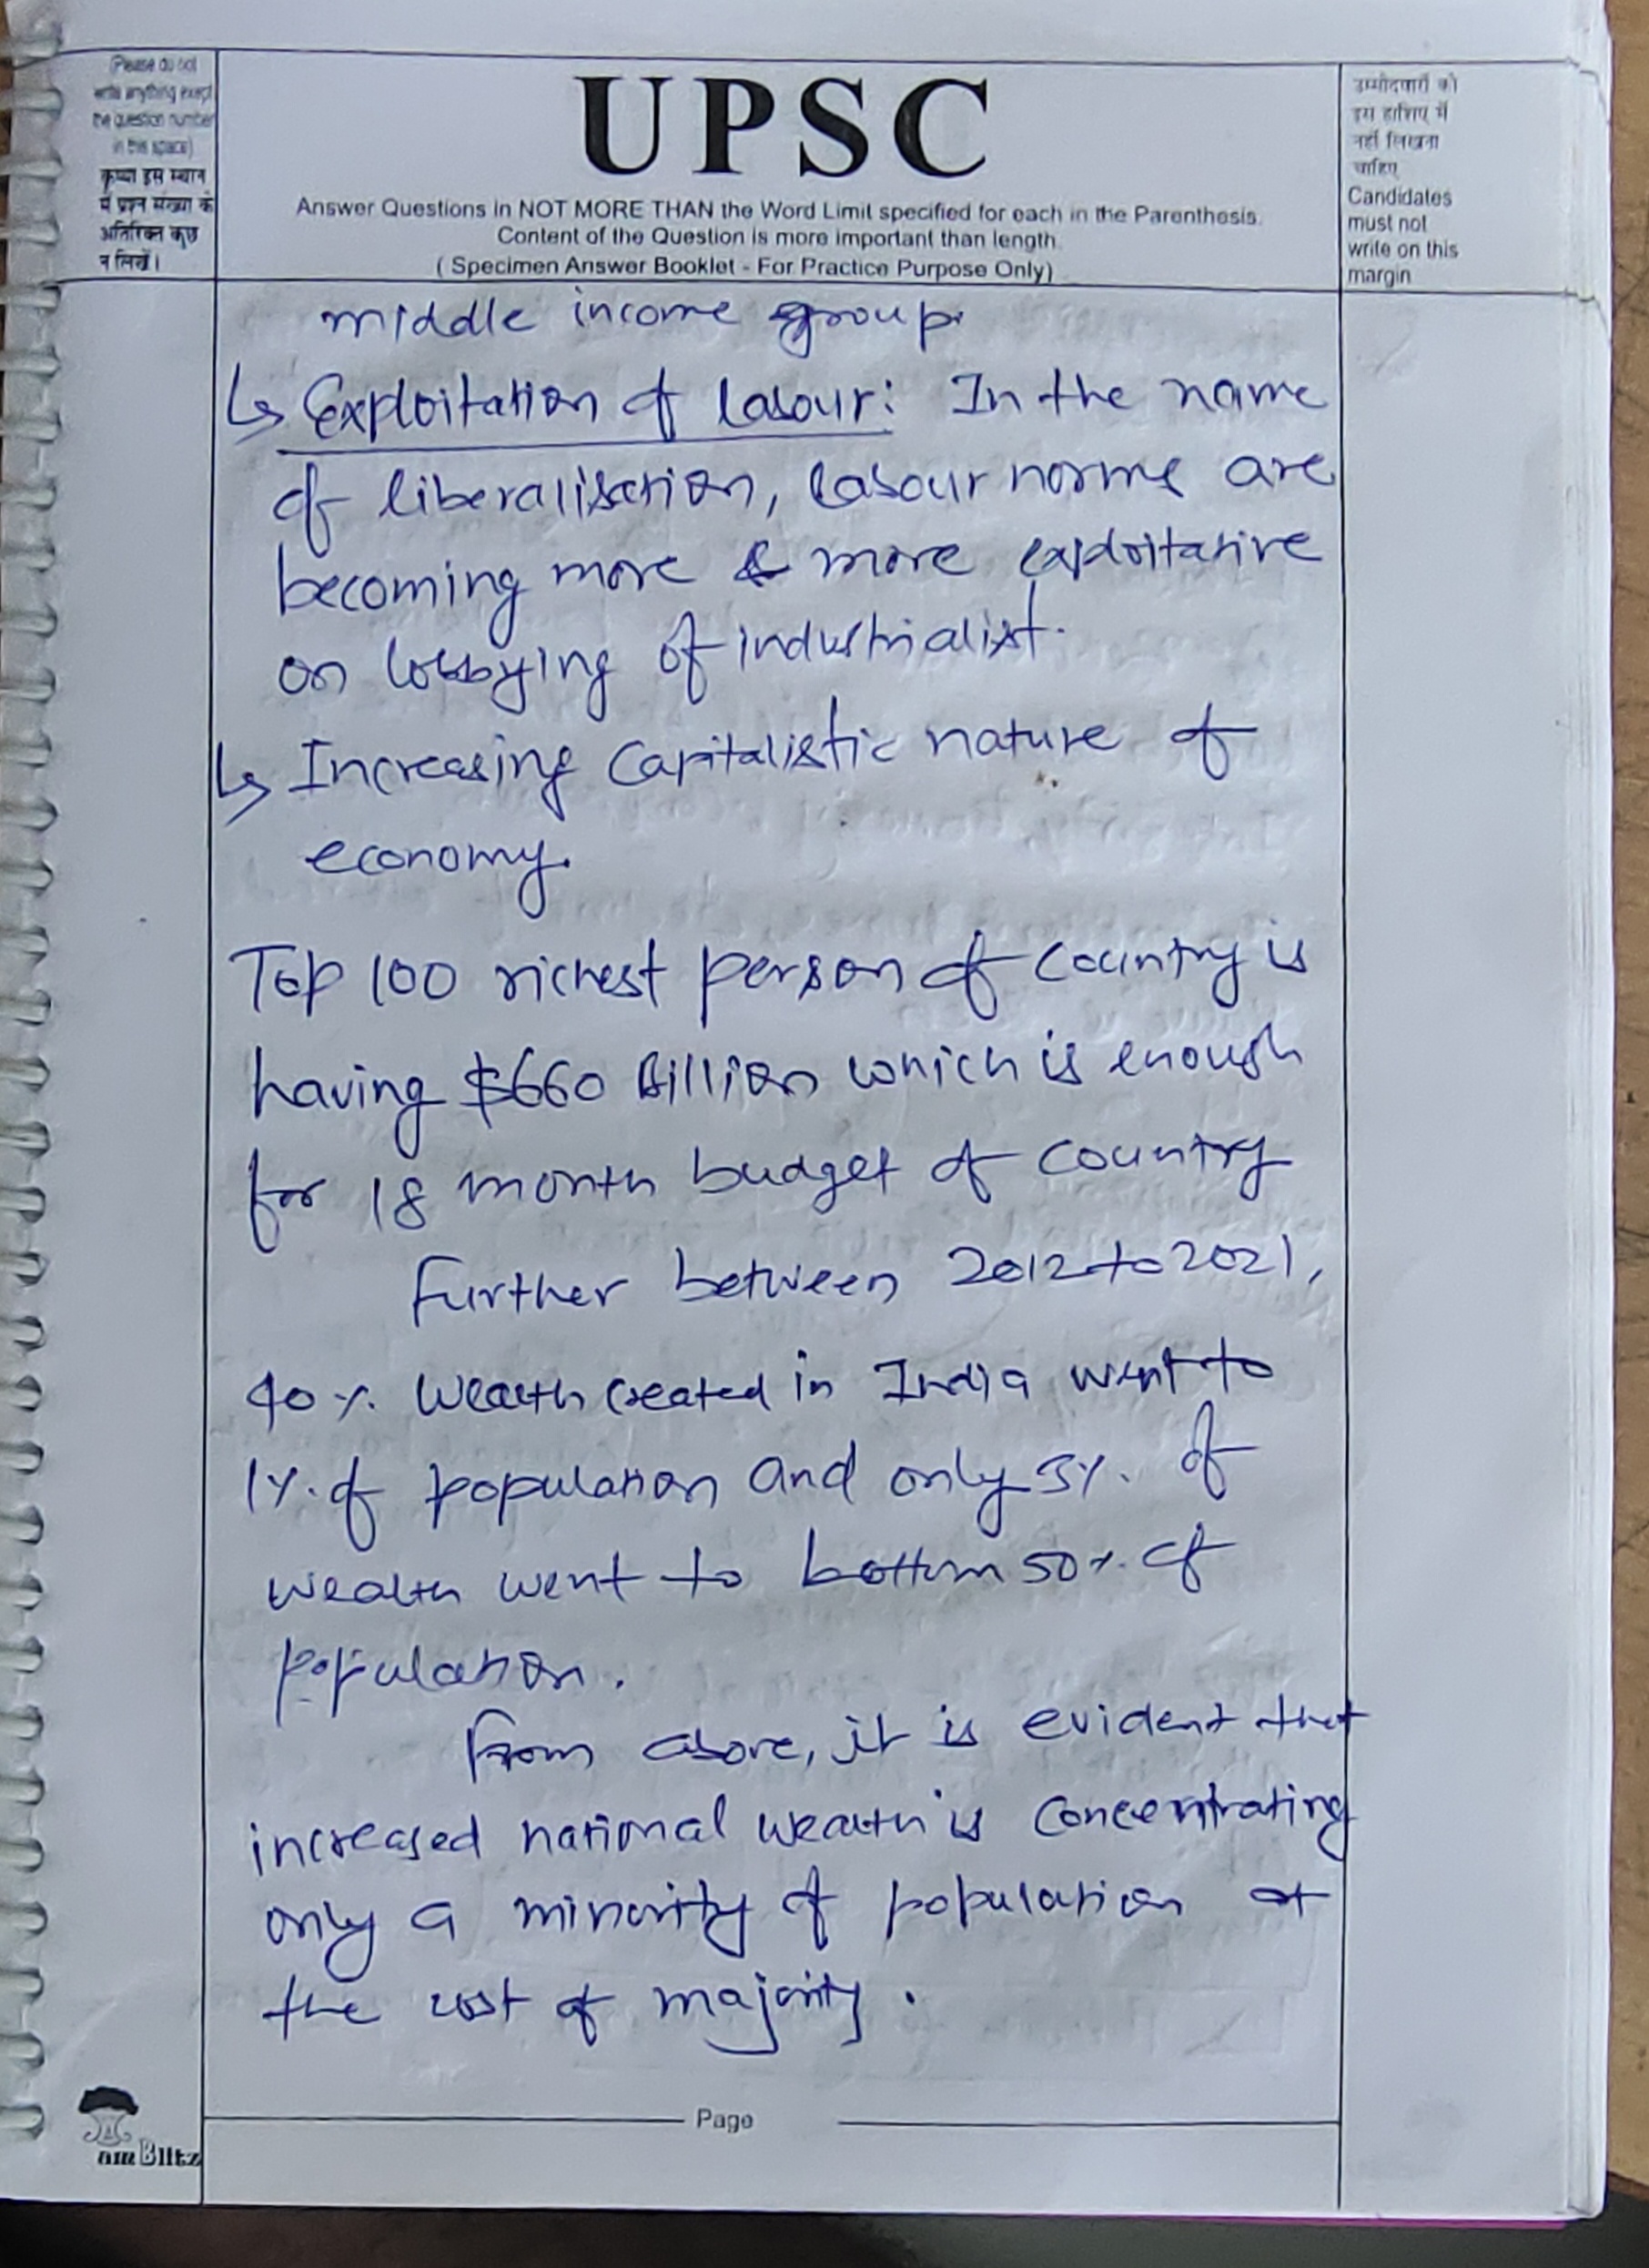 (Please do not
write anything exept
the question number
in this space)
कृपया इस स्थान
में प्रश्न संख्या के
अतिरिक्त कुछ
न लिखें।
UPSC
Answer Questions in NOT MORE THAN the Word Limit specified for each in the Parenthesis.
Content of the Question is more important than length.
( Specimen Answer Booklet - For Practice Purpose Only)
उम्मीदवारों को
इस हाशिए में
नहीं लिखना
चाहिए
Candidates
must not
write on this
margin
middle income group.
↳ Exploitation of labour: In the name
of liberalisation, labour norms are
becoming more & more exploitative
on lobbying of industrialist.
↳ Increasing Capitalistic nature of
economy.
Top 100 richest person of country is
having $660 Billion which is enough
for 18 month budget of country
Further between 2012 to 2021,
40% wealth created in India went to
1% of population and only 3% of
wealth went to bottom 50% of
population.
From above, it is evident that
increased national wealth is concentrating
only a minority of population at
the cost of majority.
Page